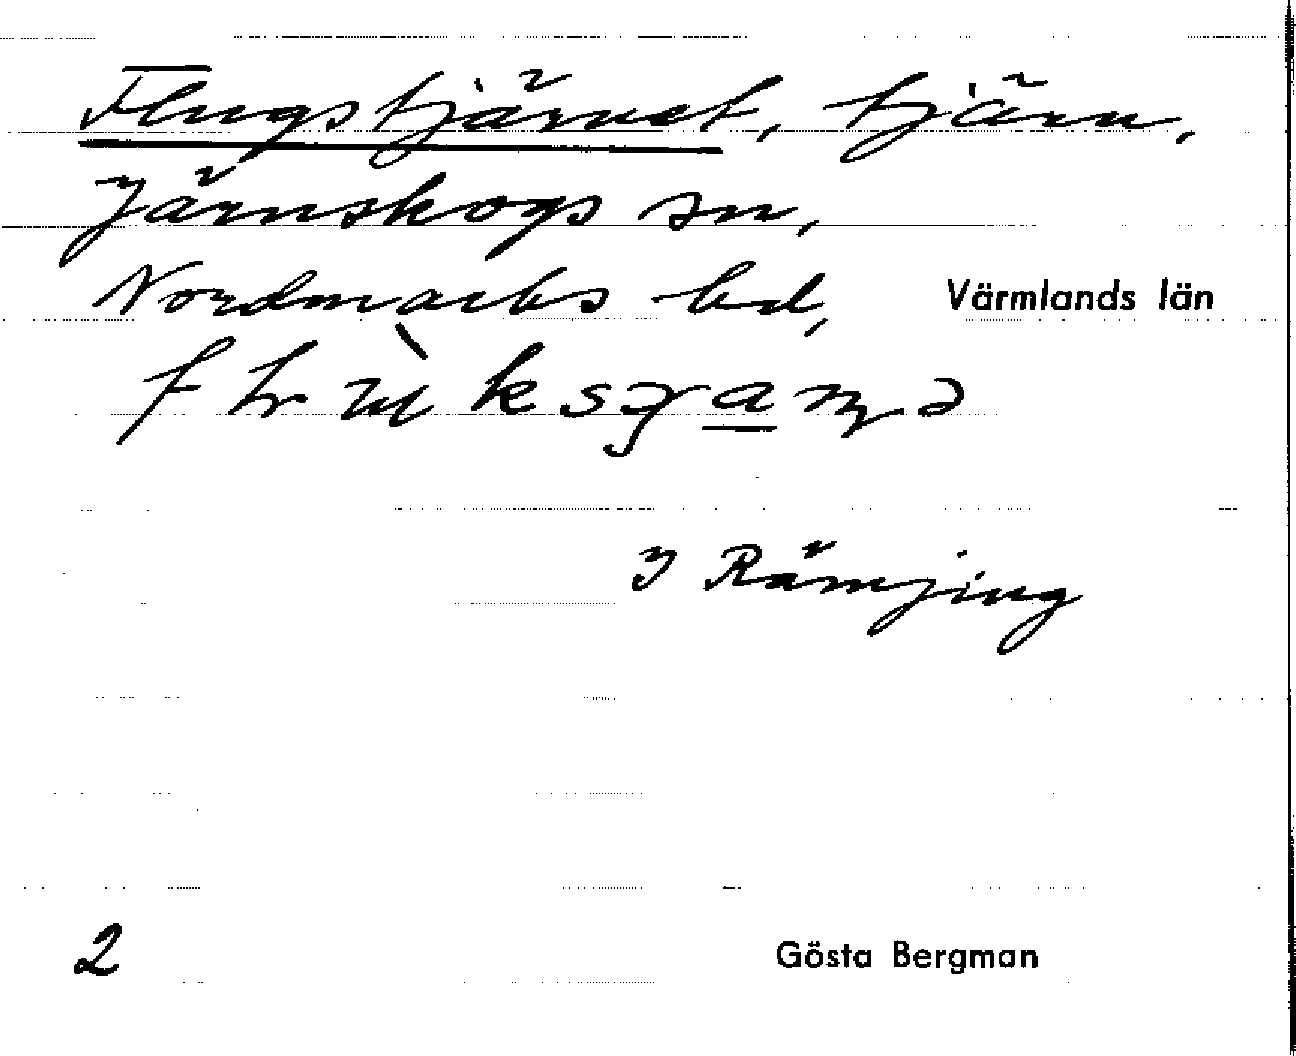 Flugstjärnet, tjärn,
Järnskogs sn,
Nordmarks hd, Värmlands län
I Rämjing
2 Gösta Bergman